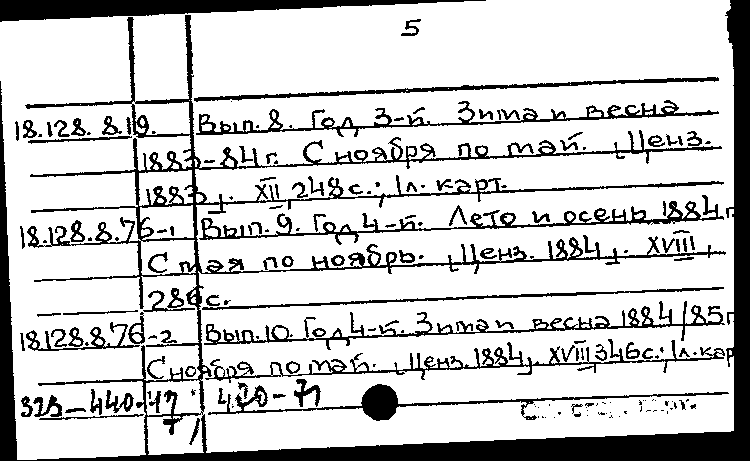 5
18.128.8.19. Вып. 8. Год 3-й. Зима и весна
1883-84 г. С ноября по май. [Ценз.
1883]. XII, 248 с.; 1 л. карт.
18.128.8.76-1 Вып. 9. Год 4-й. Лето и осень 1884 г.
С мая по ноябрь. [Ценз. 1884]. XVIII,
286 с.
18.128.8.76-2 Вып. 10. Год 4-й. Зима и весна 1884/85 г.
С ноября по май. [Ценз. 1884]. XVIII, 346 с.; 1 л. карт